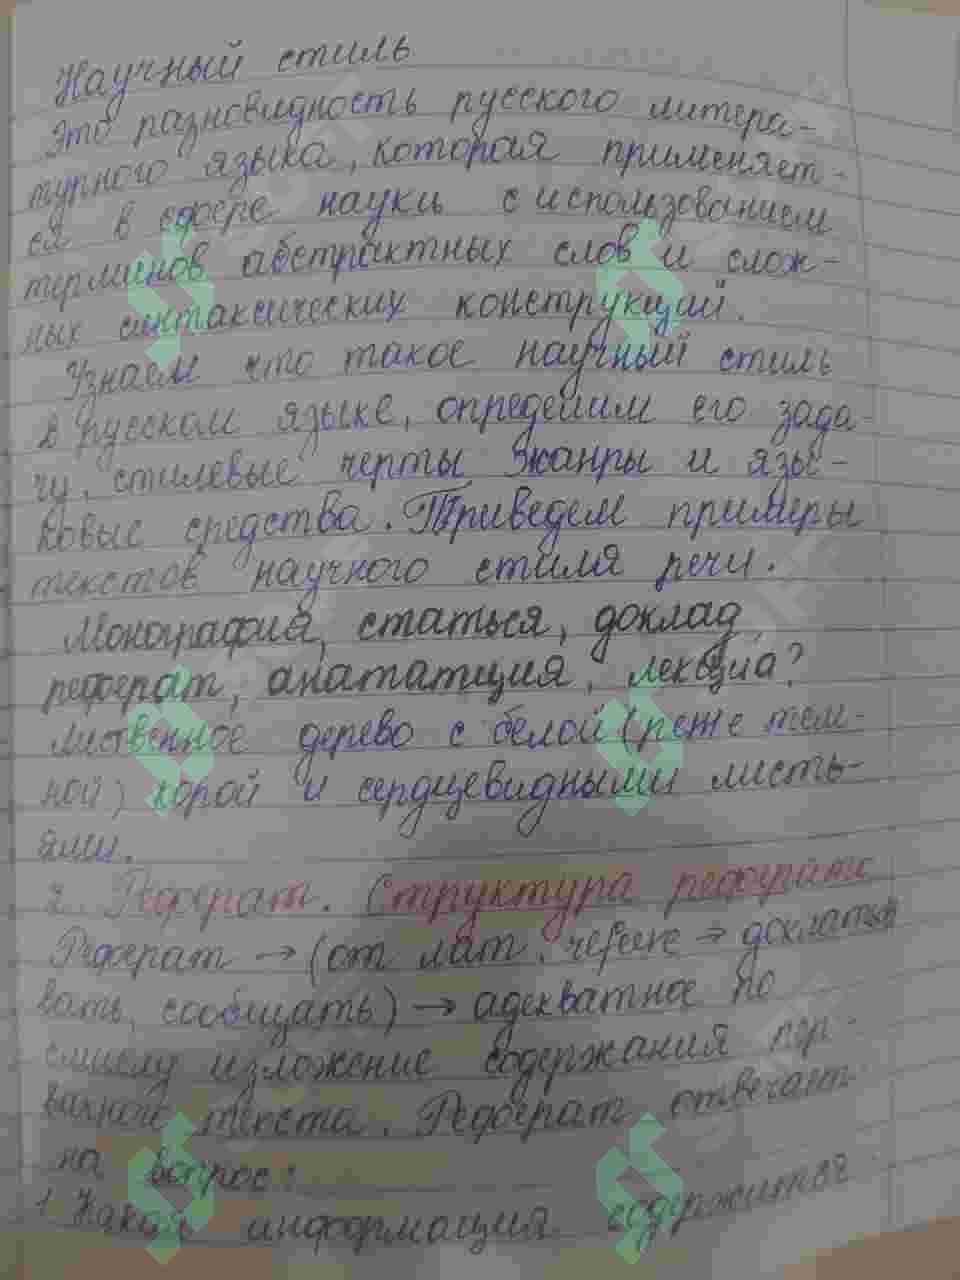 Научный стиль
Это разновидность русского литера-
турного языка, которая применяет-
ся в сфере науки с использованием
терминов абстрактных слов и слож-
ных синтаксических конструкций.
Узнаем что такое научный стиль
в русском языке, определим его зада-
чу, стилевые черты жанры и язы-
ковые средства. Приведем примеры
текстов научного стиля речи.
Монография, статься, доклад
реферат, анататция, лекция?
лиственное дерево с белой (реже тем-
ной) корой и сердцевидными листь-
ями.
2. Реферат. Структура реферата
Реферат → (от лат. → докладыв
вать, сообщать) → адекватное по
смыслу изложение содержания пер-
вичного текста. Реферат отвечает
на вопрос:
1 Какая информация содержится